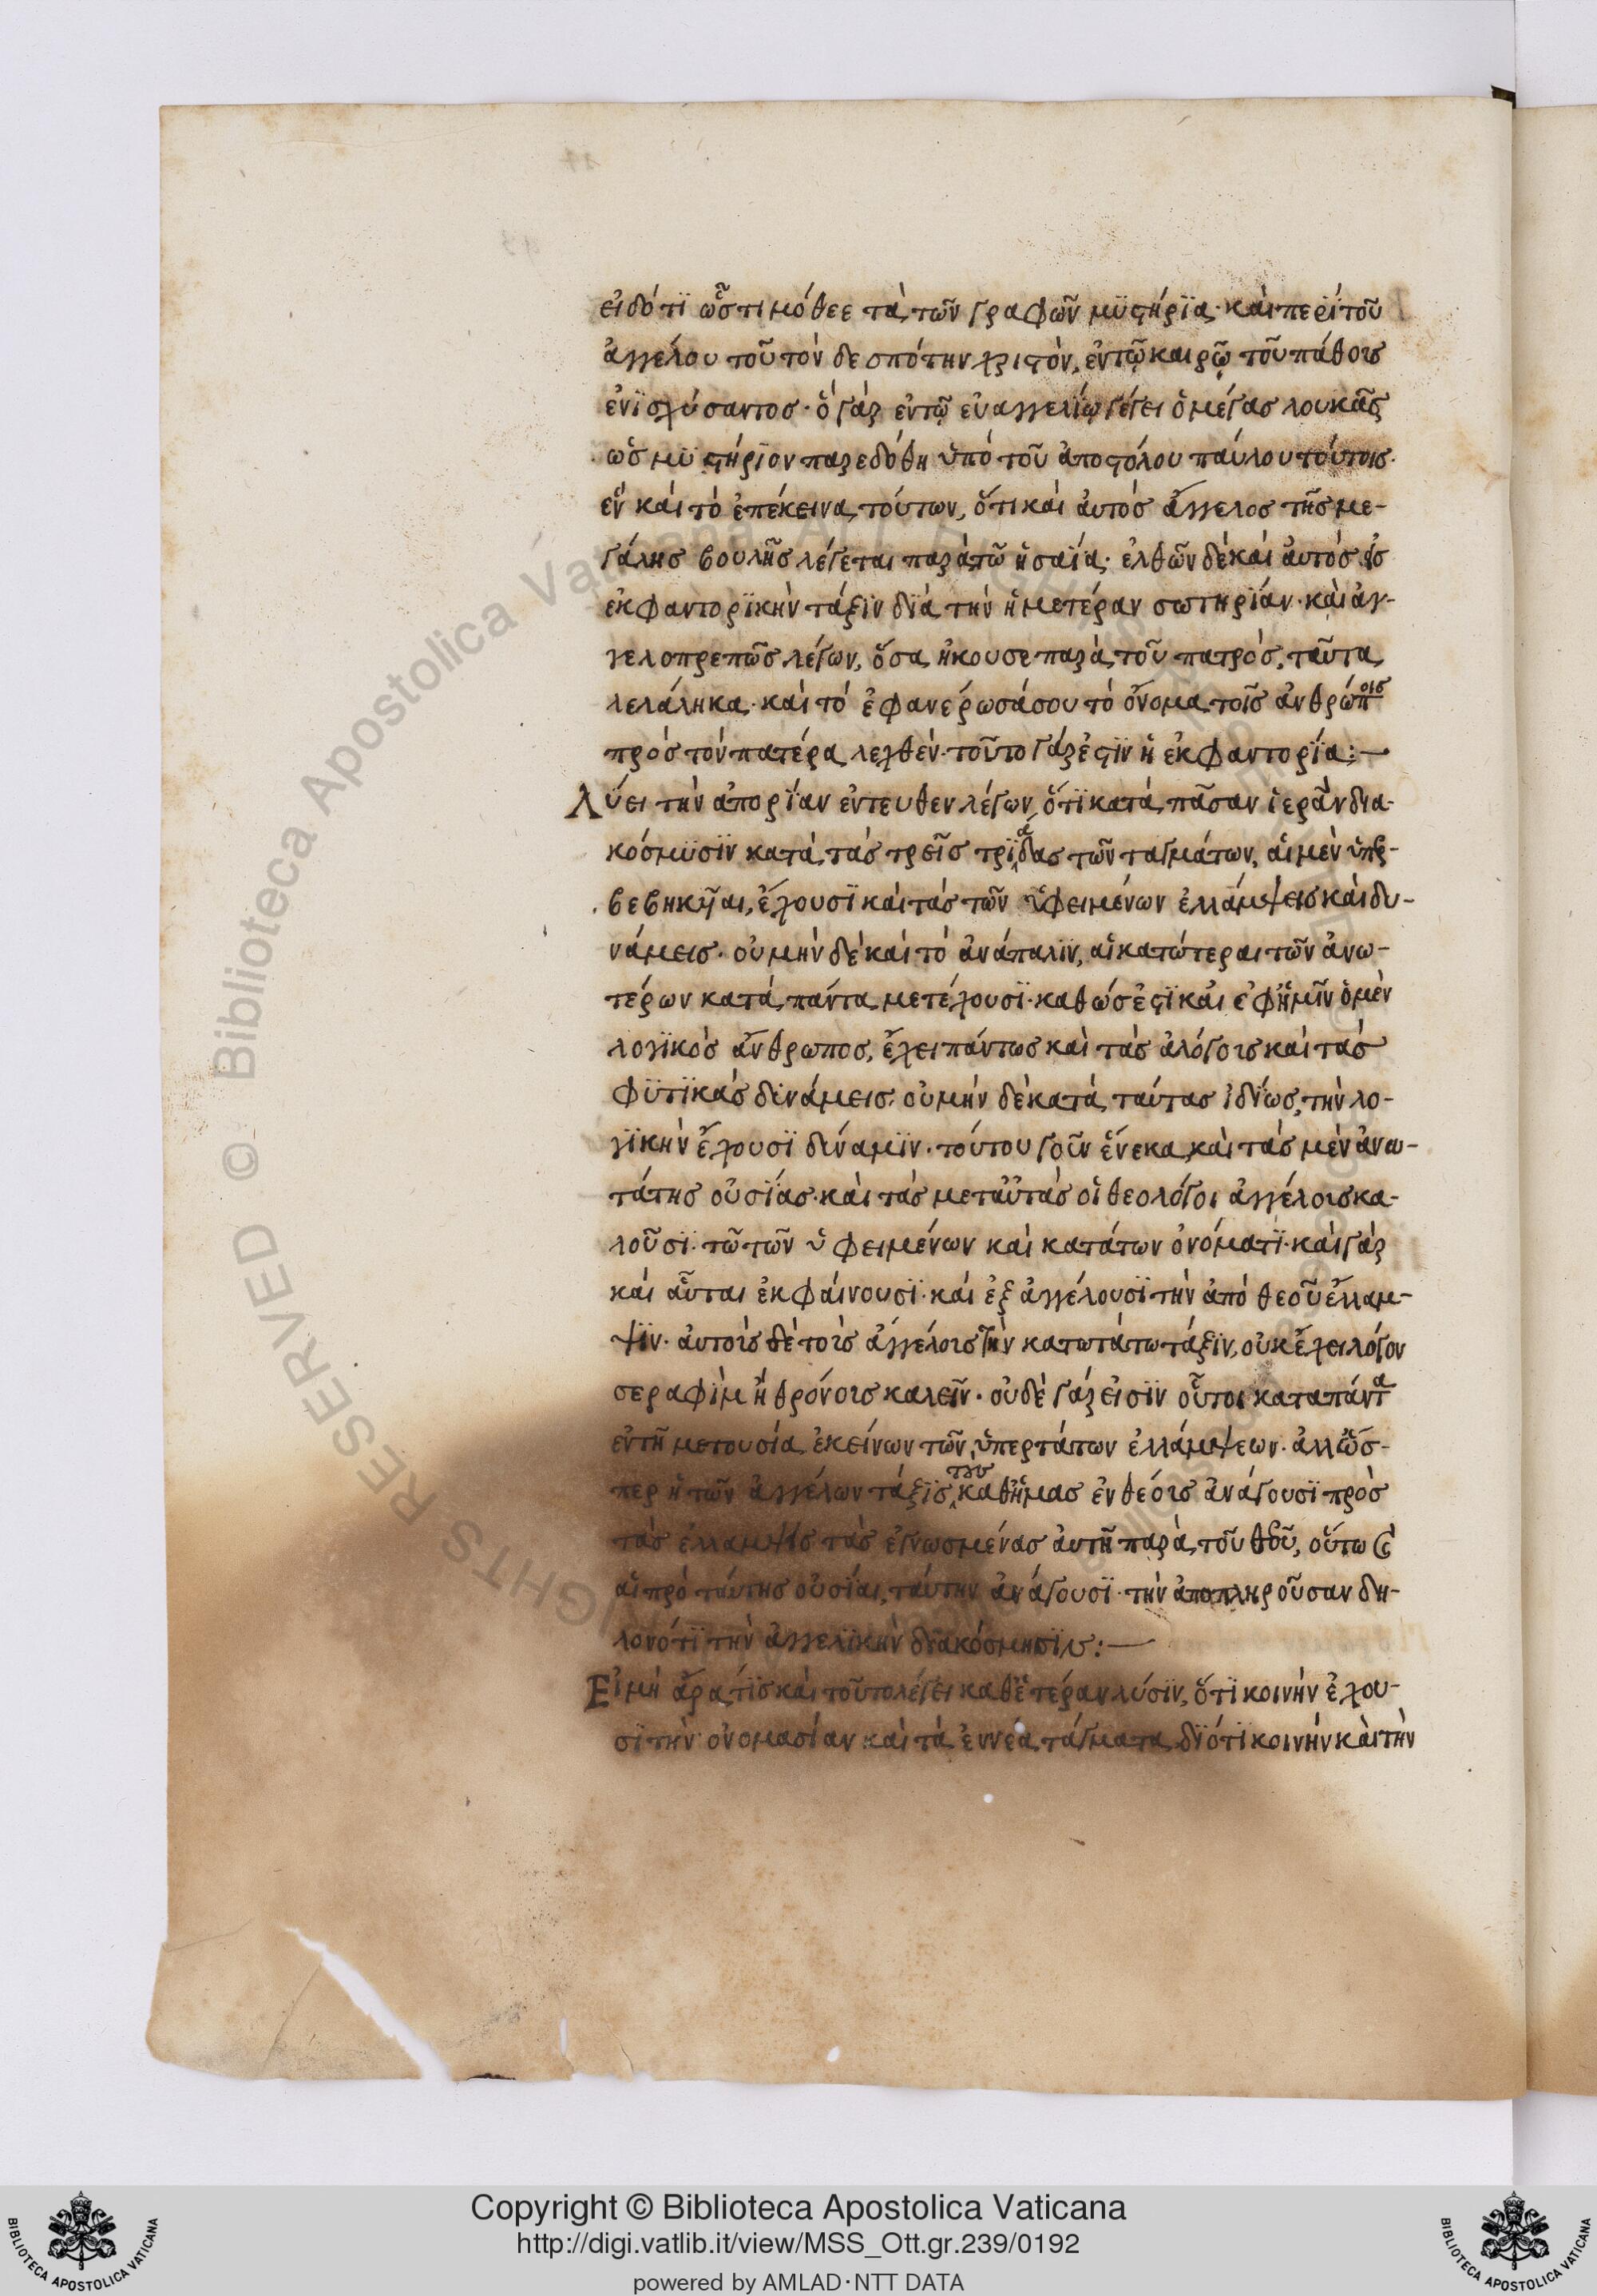 εἰδότϊ ὦ τιμόθεε τὰ τῶν γραφῶν μϋστήρϊα· καὶ περὶ τοῦ
ἀγγέλου τοῦ τὸν δεσπότην χριστὸν, ἐν τῷ καιρῷ τοῦ πάθους
ἐνϊσχύσαντος· ὃ γὰρ ἐν τῷ εὐαγγελίῳ λέγει ὁ μέγας λουκᾶς
ὡς μϋστήρϊον παρεδόθη ὑπὸ τοῦ ἀποστόλου παύλου τούτοις·
ἓν καὶ τὸ ἐπέκεινα τούτων, ὅτι καὶ αὐτὸς ἄγγελος τῆς με-
γάλης βουλῆς λέγεται παρὰ τῶ ἡσαΐα· ἐλθὼν δὲ καὶ αὐτὸς εἰς
ἐκφαντορϊκὴν τάξϊν δϊὰ τὴν ἡμετέραν σωτηρϊάν· καὶ ἀγ-
γελοπρεπῶς λέγων, ὅσα ἤκουσε παρὰ τοῦ πατρὸς, ταῦτα
λελάληκα· καὶ τὸ ἐφανέρωσά σου τὸ ὄνομα τοῖς ἀνθρώποις
πρὸς τὸν πατέρα λεχθέν· τοῦτο γάρ ἐστϊν ἡ ἐκφαντορία:—
Λϋει τὴν ἀπορϊαν ἐντευθεν λέγων, ὅτϊ κατὰ πᾶσαν ἱερὰν δια-
κόσμϋσϊν κατὰ τὰς τρεῖς τρϊάδας τῶν ταγμάτων, αἱ μὲν ὑπερ-
βεβηκῆαι, ἔχουσϊ καὶ τὰς τῶν ὑφειμένων ἐλλάμψεις καὶ δυ-
νάμεις· οὐ μὴν δὲ καὶ τὸ ἀνάπαλϊν, αἱ κατώτεραι τῶν ἀνω-
τέρων κατὰ πάντα μετέχουσϊ· καθώς ἐστϊ καὶ ἐφ ἡμῖν ὁ μὲν
λογϊκὸς ἄνθρωπος, ἔχει πάντως καὶ τὰς ἀλόγους καὶ τὰς
φϋτϊκὰς δϋνάμεις, οὐ μὴν δὲ κατὰ ταύτας ἰδϊως, τὴν λο-
γϊκὴν ἔχουσϊ δύναμϊν· τούτου γοῦν ἕνεκα καὶ τὰς μὲν ἀνω-
τάτης οὐσϊας· καὶ τὰς μετ αὐτὰς οἱ θεολόγοι ἀγγέλους κα-
λοῦσϊ· τῶ τῶν ὑφειμένων καὶ κατάτων ὀνόματϊ· καὶ γὰρ
καὶ αὗται ἐκφαίνουσϊ· καὶ ἐξαγγέλουσϊ τὴν ἀπὸ θεοῦ ἔλλαμ-
ψϊν· αὐτοὺς δὲ τοὺς ἀγγέλους τὴν κατωτάτω τάξϊν, οὐκ ἔχει λόγον
σεραφὶμ ἢ θρόνους καλεῖν· οὐδὲ γάρ εἰσϊν οὗτοι κατὰ πάντα
ἐν τῆ μετουσία ἐκείνων τῶν ὑπερτάτων ἐλλάμψεων· ἀλλ ὥσ-
περ ἡ τῶν ἀγγέλων τάξϊς, τοὺς καθ ἡμᾶς ἐνθέους ἀνάγουσϊ πρὸς
τὰς ἐλλαμψεις τὰς ἐγνωσμένας αὐτῆ παρὰ τοῦ θεοῦ, οὕτω καὶ
αἱ πρὸ ταύτης οὐσϊαι, ταύτην ἀνάγουσϊ· τὴν ἀποπληροῦσαν δη-
λονότϊ τὴν ἀγγελϊκὴν δϊακόσμησϊν:—
Εἰ μὴ ἄρα τϊς καὶ τοῦτο λέγει καθ ἑτέραν λύσϊν, ὅτϊ κοινὴν ἔχου-
σϊ τὴν ὀνομασίαν καὶ τὰ ἐννέα τάγματα, δϊότϊ κοινὴν καὶ τὴν
Copyright © Biblioteca Apostolica Vaticana
http://digi.vatlib.it/view/MSS_Ott.gr.239/0192
powered by AMLAD·NTT DATA
BIBLIOTECA APOSTOLICA VATICANA
BIBLIOTECA APOSTOLICA VATICANA